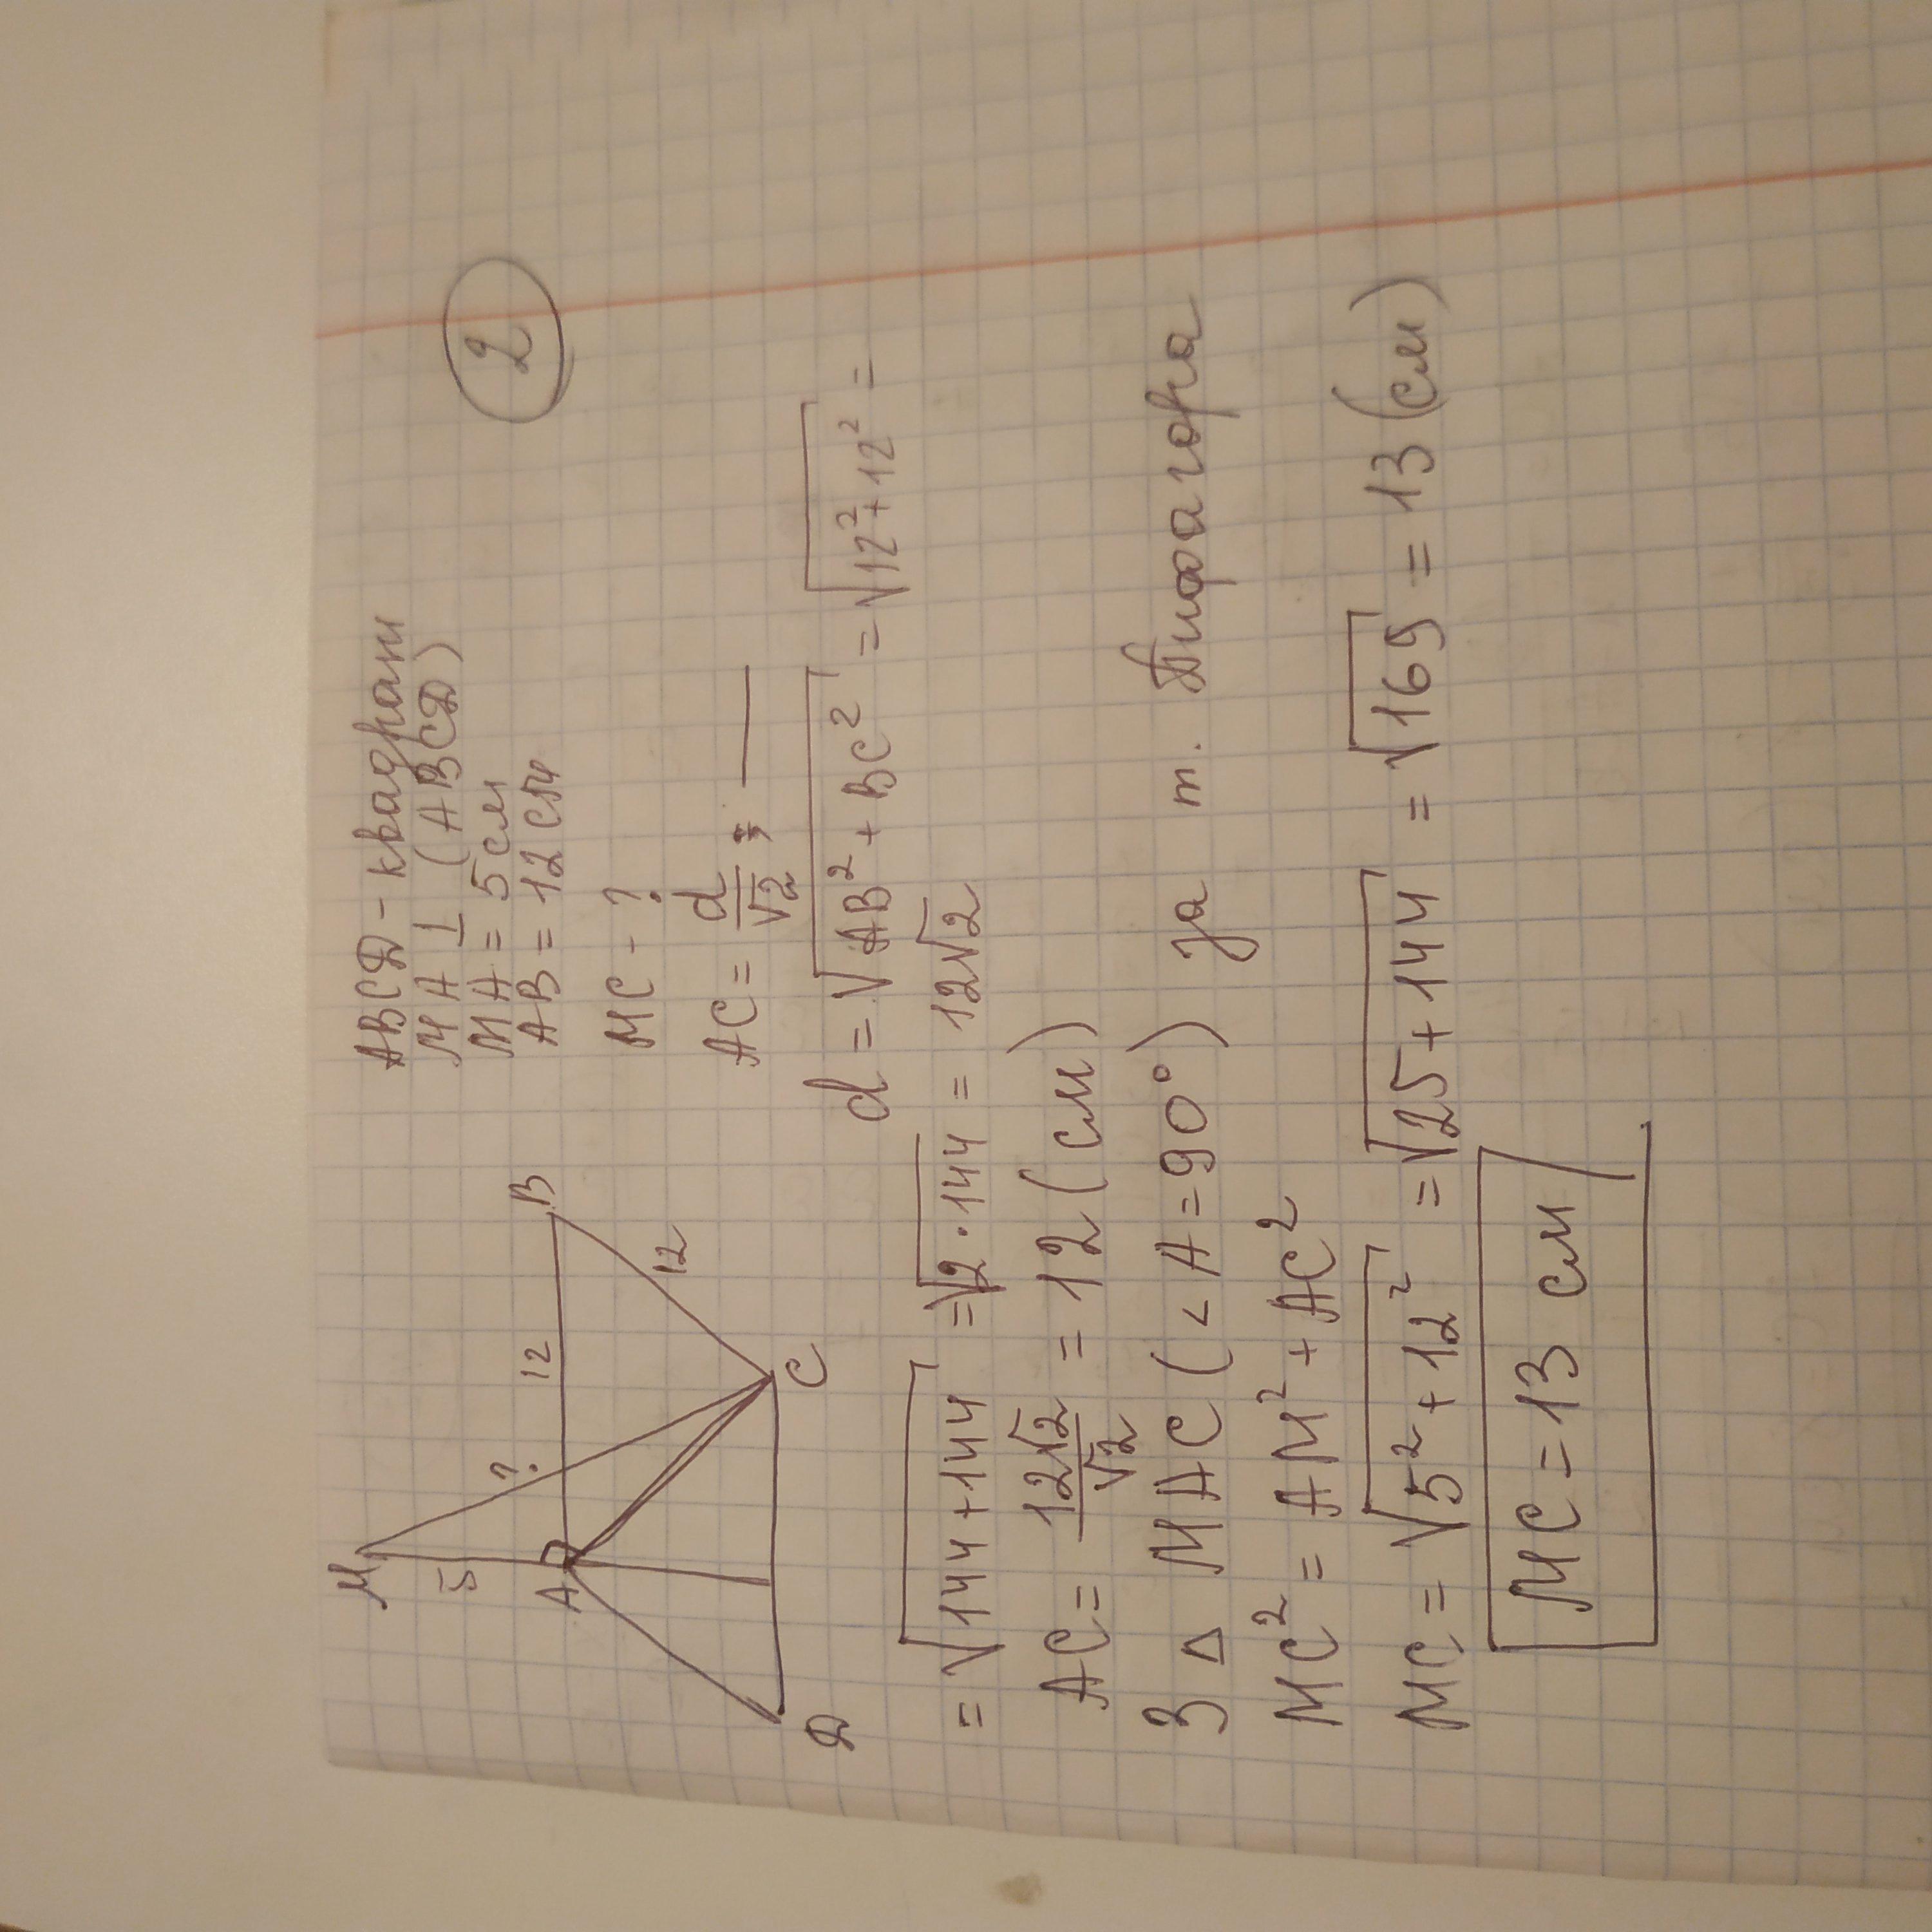 2
ABCD - квадрат
MA ⊥ (ABCD)
MA = 5 см
AB = 12 см
MC - ?
AC = d/√2 ;
M
5
?
A
12
B
12
C
D
d = √AB² + BC² = √12² + 12² =
= √144 + 144 = √2 · 144 = 12√2
AC = 12√2/√2 = 12 (см)
З △ MAC (< A = 90°) за т. Піфагора
MC² = AM² + AC²
MC = √5² + 12² = √25 + 144 = √169 = 13 (см)
MC = 13 см